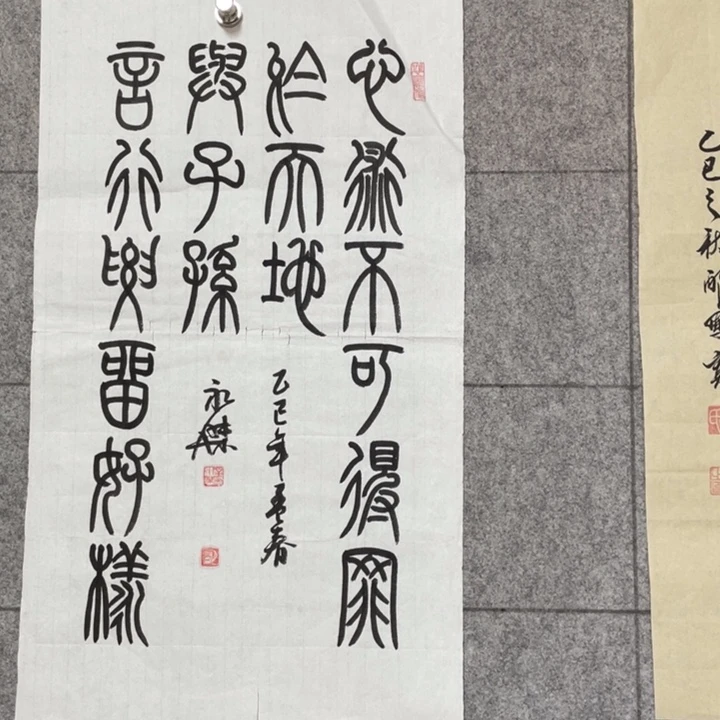 心術不可得罪
於天地
乙巳年
春
言行要留好樣
與子孫
永傑
乙巳之秋